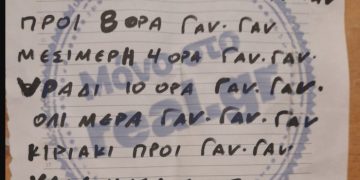 ΠΡΟΙ 8 ΟΡΑ ΓΑV. ΓΑV
ΜΕΣΙΜΕΡΗ 4 ΟΡΑ ΓΑV. ΓΑV
ΒΡΑΔΙ 10 ΟΡΑ ΓΑV. ΓΑV.
ΟΛΙ ΜΕΡΑ ΓΑV. ΓΑV. ΓΑV
ΚΙΡΙΑΚΙ ΠΡΟΙ ΓΑV. ΓΑV
Μόνο στο
real.gr